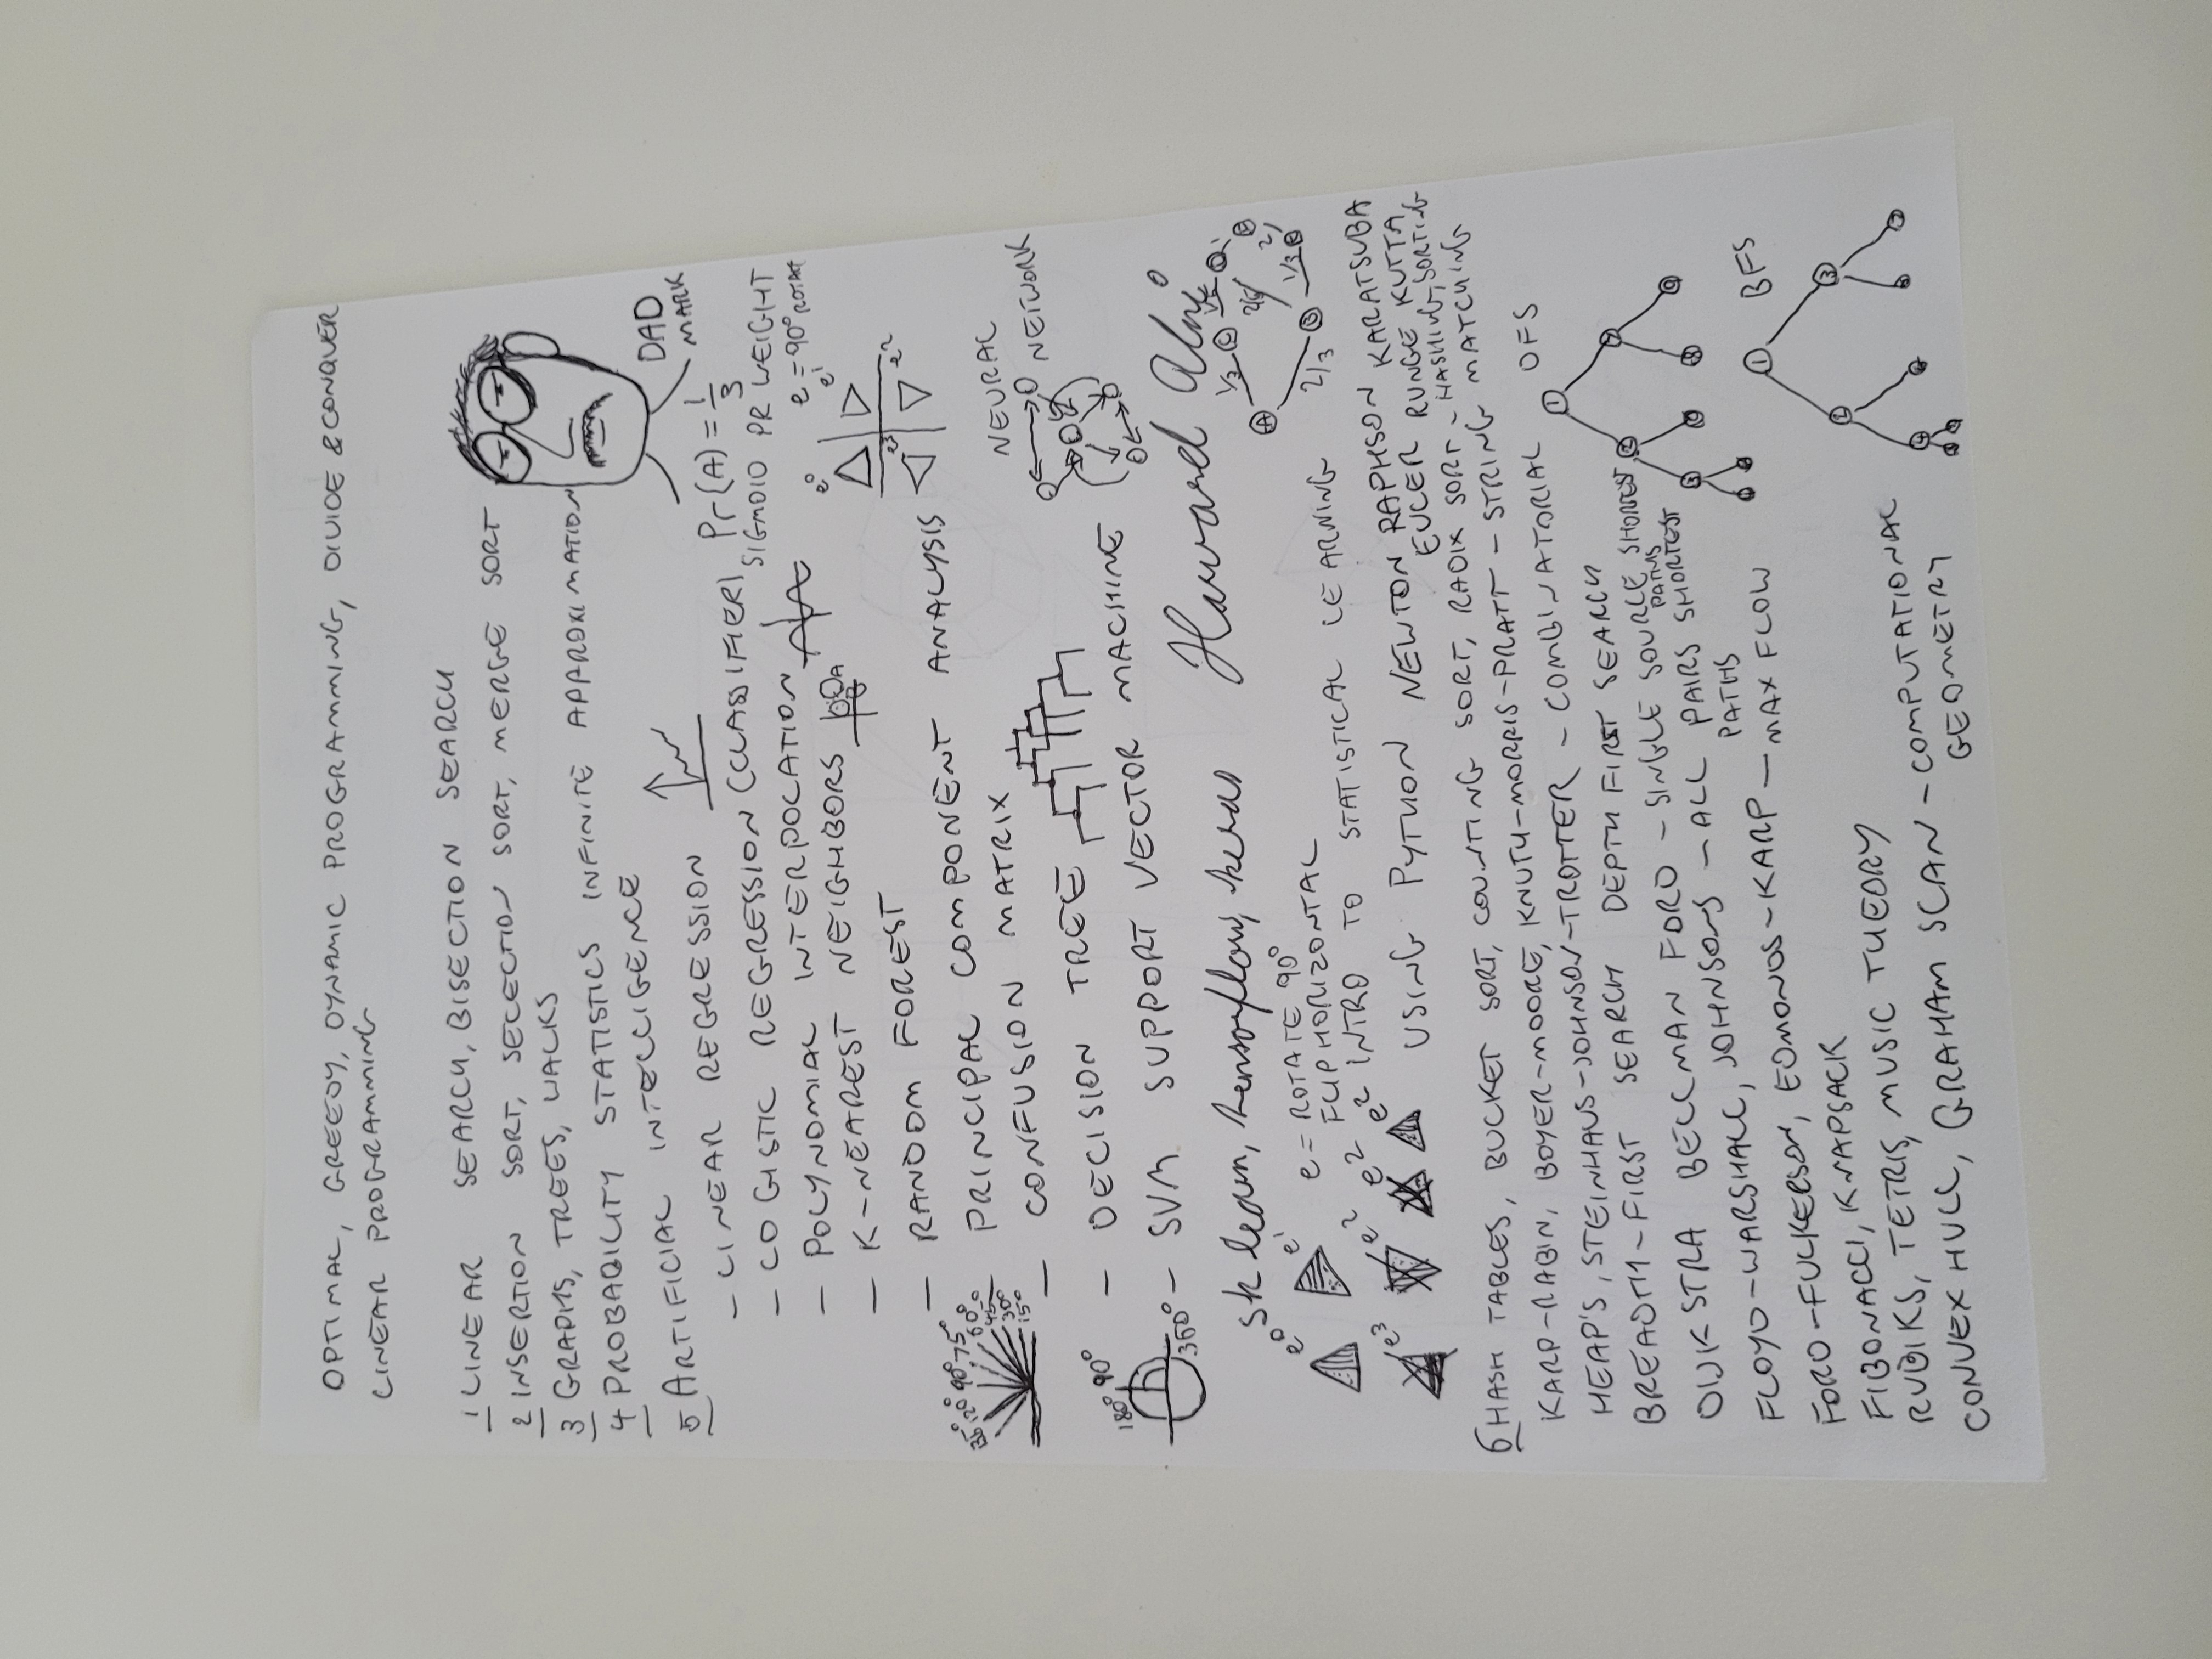 OPTIMAL, GREEDY, DYNAMIC PROGRAMMING, DIVIDE & CONQUER
LINEAR PROGRAMMING
1 LINEAR SEARCH, BISECTION SEARCH
2 INSERTION SORT, SELECTION SORT, MERGE SORT
3 GRAPHS, TREES, WALKS
4 PROBABILITY STATISTICS INFINITE APPROXIMATION
5 ARTIFICIAL INTELLIGENCE
DAD
MARK
- LINEAR REGRESSION
- LOGISTIC REGRESSION (CLASSIFIER) Pr(A) = 1/3
SIGMOID PR WEIGHT
- POLYNOMIAL INTERPOLATION
e = 90° ROTATE
e⁰ e¹
e³ e²
- K-NEAREST NEIGHBORS
A
B
- RANDOM FOREST
- PRINCIPAL COMPONENT ANALYSIS
135° 120° 90° 75° 60° 45° 30° 15°
- CONFUSION MATRIX
NEURAL
NETWORK
- DECISION TREE
180° 90°
360°
- SVM SUPPORT VECTOR MACHINE
sk learn, tensorflow, keras
Harvard Alni
A 1/3 C 1/5 D 1
2/5 E 2
2/3 B 1/3
e⁰ e¹
e = ROTATE 90°
FLIP HORIZONTAL
e³ e² e² e²
INTRO TO STATISTICAL LEARNING
USING PYTHON NEWTON RAPHSON KARATSUBA
EULER RUNGE KUTTA
6 HASH TABLES, BUCKET SORT, COUNTING SORT, RADIX SORT - HASHING, SORTING
KARP-RABIN, BOYER-MOORE, KNUTH-MORRIS-PRATT - STRING MATCHING
HEAP'S, STEINHAUS-JOHNSON-TROTTER - COMBINATORIAL
DFS
1
2 7
3 6 8 9
4 5
BREADTH-FIRST SEARCH DEPTH FIRST SEARCH
DIJKSTRA BELLMAN FORD - SINGLE SOURCE SHORTEST
PATHS
FLOYD-WARSHALL, JOHNSONS - ALL PAIRS SHORTEST
PATHS
FORD-FULKERSON, EDMONDS-KARP - MAX FLOW
BFS
1
2 3
4
FIBONACCI, KNAPSACK
RUBIKS, TETRIS, MUSIC THEORY
CONVEX HULL, GRAHAM SCAN - COMPUTATIONAL
GEOMETRY